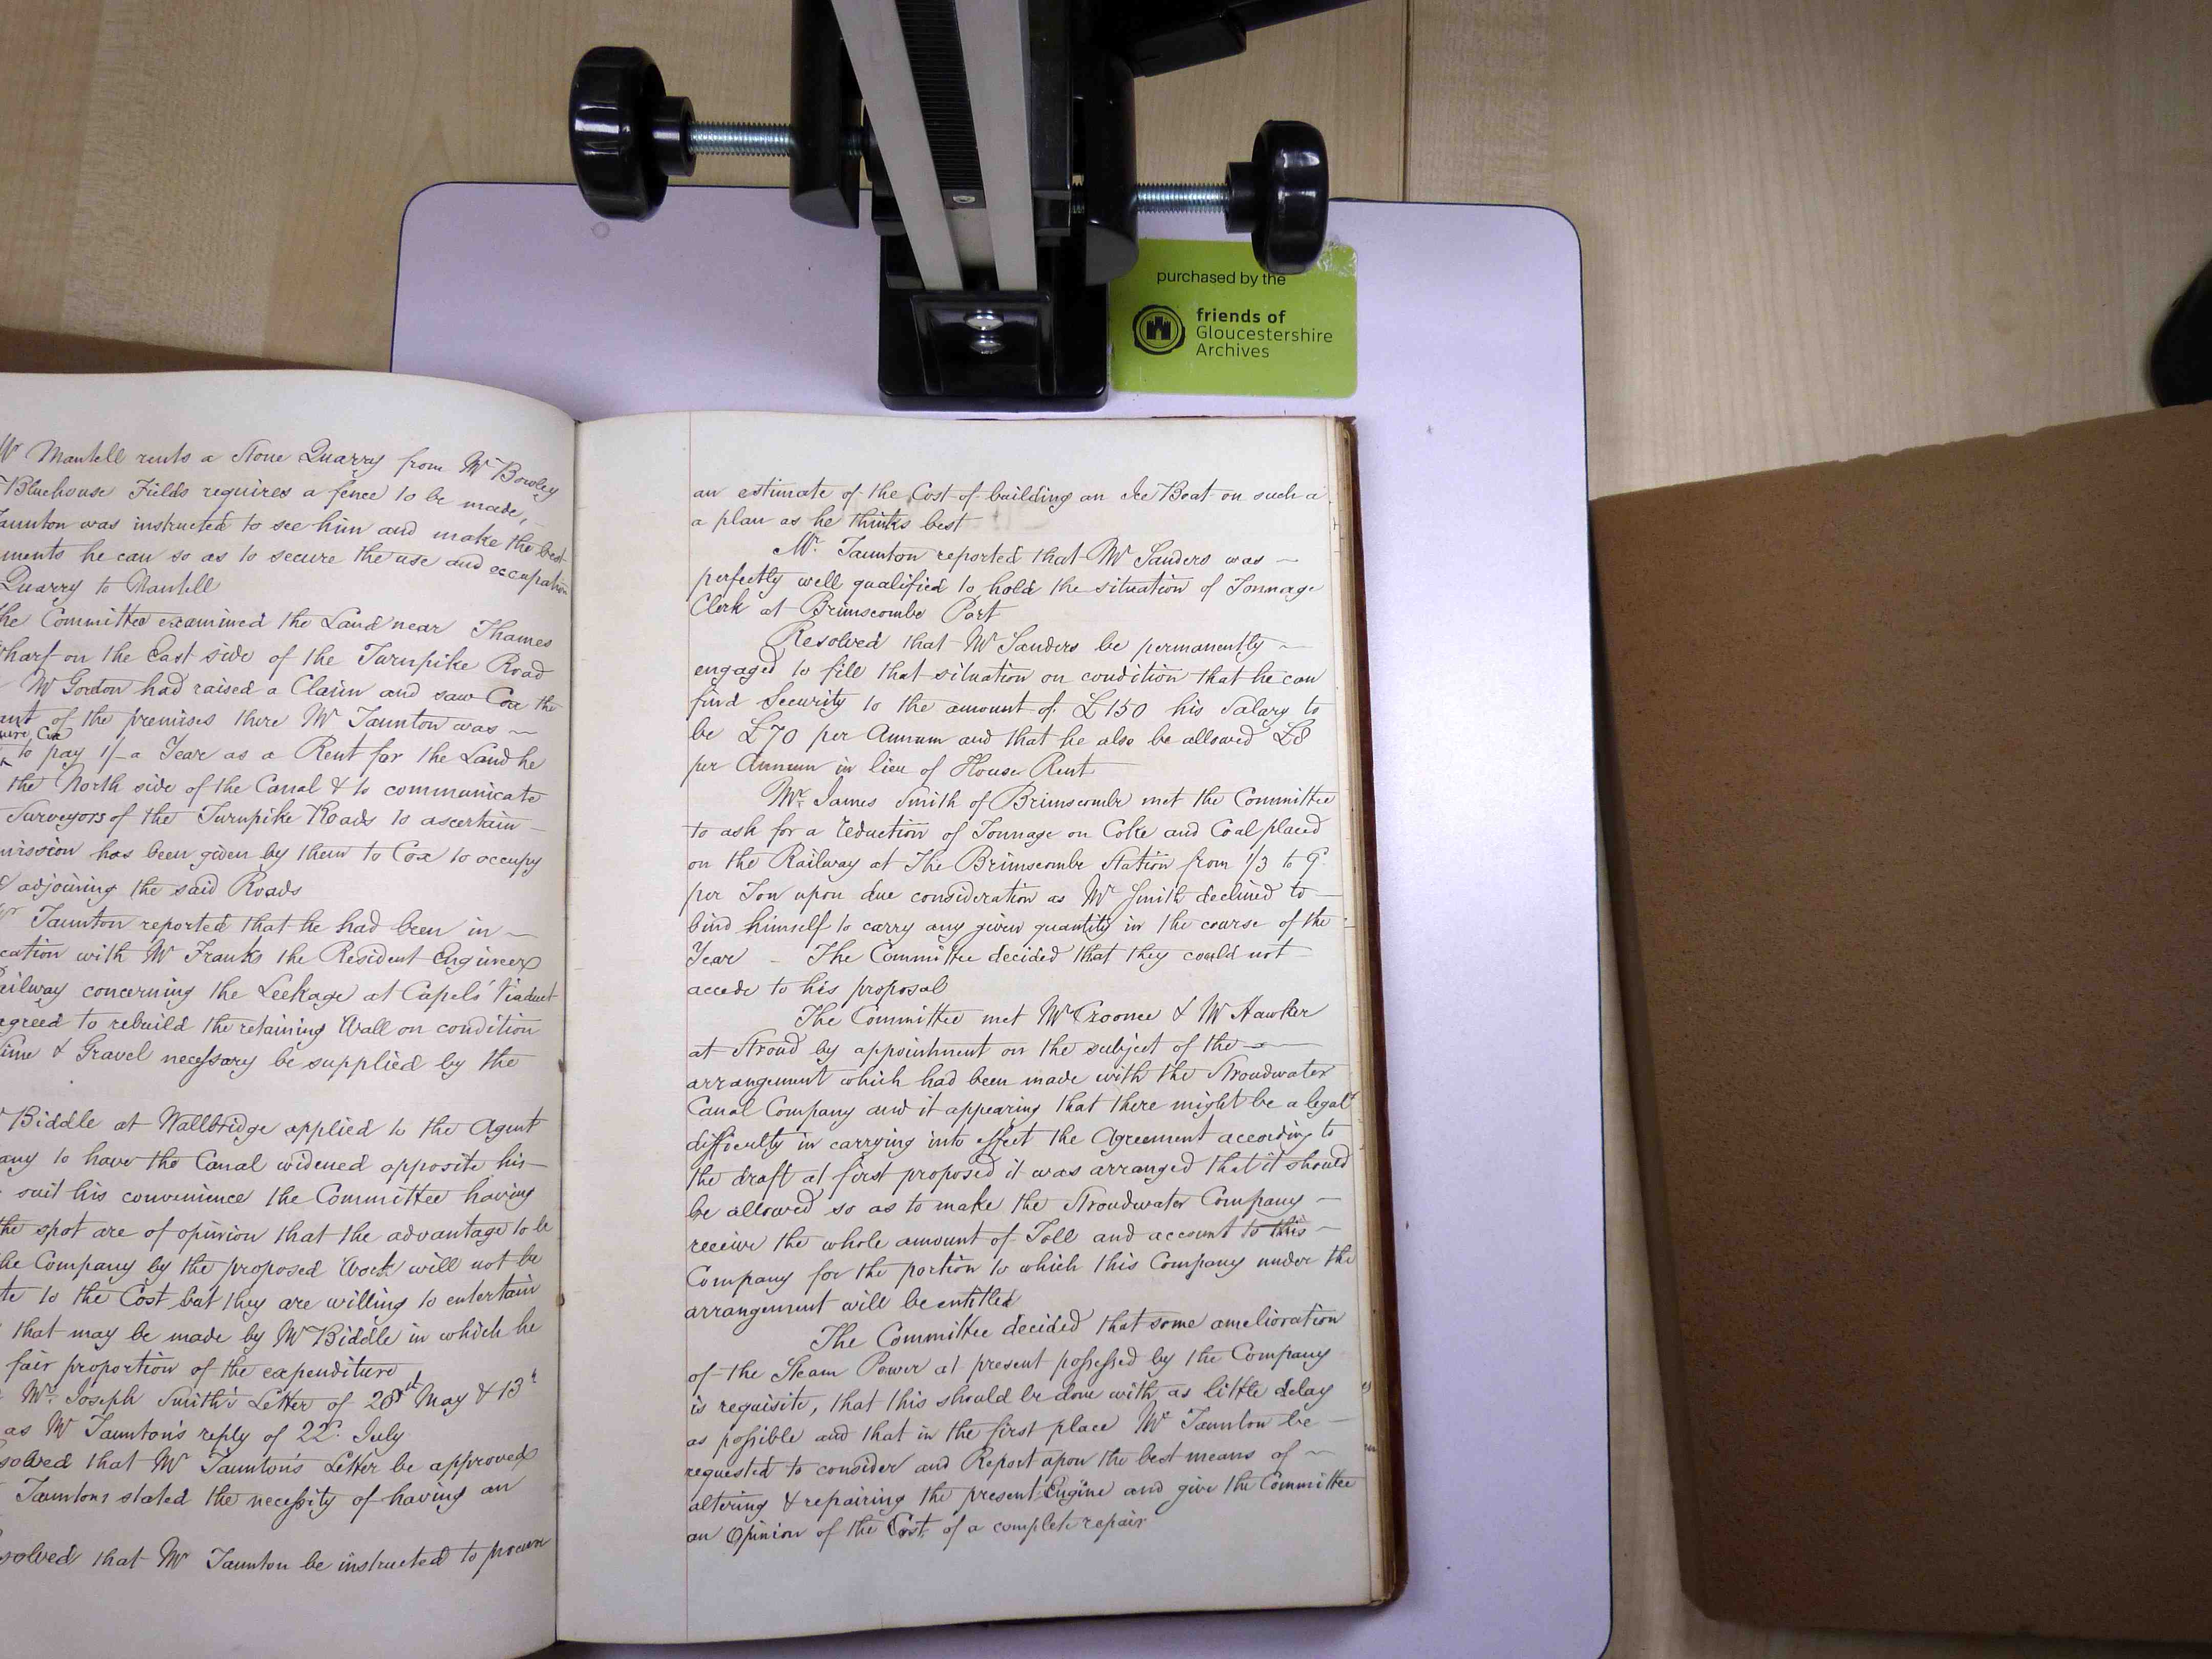 purchased by the
friends of
Gloucestershire
Archives
Mr Mantell rents a Stone Quarry from Mr Bowley
Bluehouse Fields requires a fence to be made,
Taunton was instructed to see him and make the best
ments he can so as to secure the use and occupation
Quarry to Mantell
he Committee examined the Land near Thames
harf on the East side of the Turnpike Road
Mr Gordon had raised a Claim and saw Cox the
ant of the premises there Mr Taunton was
Cox
to pay 1/- a Year as a Rent for the Land he
the North side of the Canal & to communicate
Surveyors of the Turnpike Roads to ascertain
mission has been given by them to Cox to occupy
adjoining the said Roads
Mr Taunton reported that he had been in
cation with Mr Franks the Resident Engineer
ailway concerning the Leekage at Capels' Viaduct
agreed to rebuild the retaining Wall on condition
ime & Gravel necessary be supplied by the
Biddle at Wallbridge applied to the Agent
any to have the Canal widened opposite his
suit his convenience the Committee having
the spot are of opinion that the advantage to be
he Company by the proposed Work will not be
te to the Cost but they are willing to entertain
that may be made by Mr Biddle in which he
fair proportion of the expenditure
Mr. Joseph Smith's Letter of 28th May & 13th
as Mr Taunton's reply of 22d. July
solved that Mr Taunton's Letter be approved
Taunton stated the necessity of having an
solved that Mr Taunton be instructed to procure
an estimate of the Cost of building an Ice Boat on such a
a plan as he thinks best
Mr. Taunton reported that Mr Sanders was
perfectly well qualified to hold the situation of Tonnage
Clerk at Brimscombe Port
Resolved that Mr Sanders be permanently
engaged to fill that situation on condition that he can
find Security to the amount of £150 his Salary to
be £70 per Annum and that he also be allowed £8
per Annum in lieu of House Rent
Mr. James Smith of Brimscombe met the Committee
to ask for a reduction of Tonnage on Coke and Coal placed
on the Railway at The Brimscombe Station from 1/3 to 9d
per Ton upon due consideration as Mr Smith declined to
bind himself to carry any given quantity in the course of the
Year - The Committee decided that they could not
accede to his proposal
The Committee met Mr Croome & Mr Hawker
at Stroud by appointment on the subject of the
arrangement which had been made with the Stroudwater
Canal Company and it appearing that there might be a legal
difficulty in carrying into effect the Agreement according to
the draft at first proposed it was arranged that it should
be allowed so as to make the Stroudwater Company
receive the whole amount of Toll and account to this
Company for the portion to which this Company under the
arrangement will be entitled
The Committee decided that some amelioration
of the Steam Power at present possessed by the Company
is requisite, that this should be done with as little delay
as possible and that in the first place Mr Taunton be
requested to consider and Report upon the best means of
altering & repairing the present Engine and give the Committee
an Opinion of the Cost of a complete repair